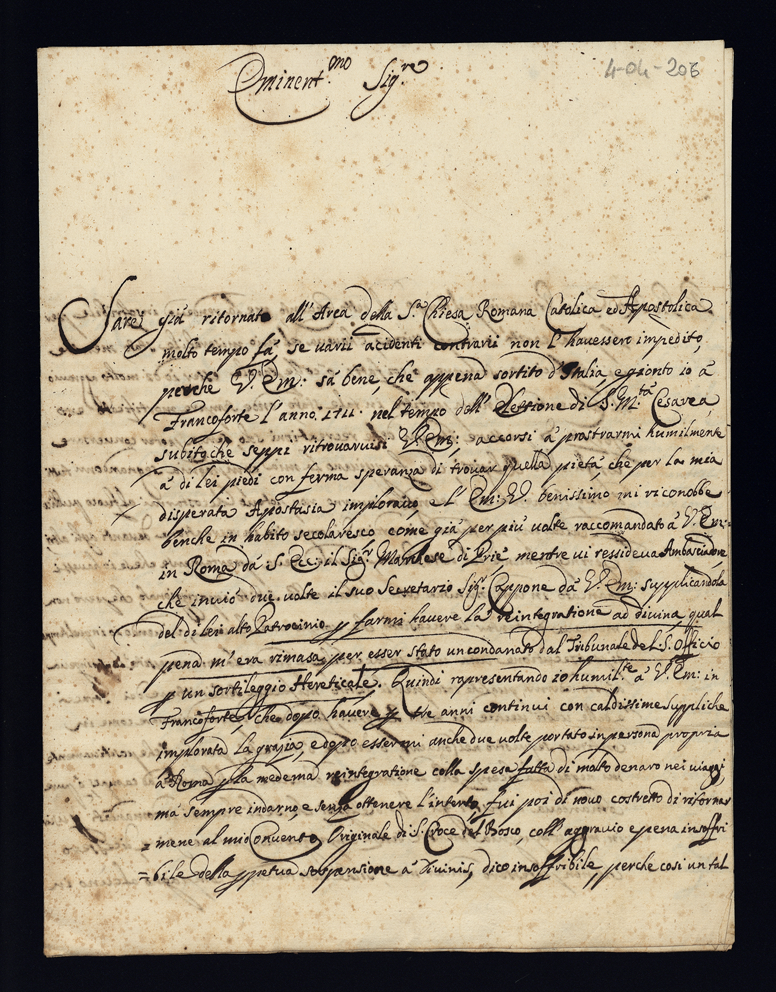 4-04-206
Eminent.mo Sig.re
Sarei già ritornato all' Arca della S.a Chiesa Romana Catolica ed Apostolica
molto tempo fà, se varii acidenti contrarii non l' havessero impedito,
perche V. Em: sà bene, che appena sortito d' Italia, e gionto io à
Francoforte l' anno 1711. nel tempo dell' Elettione di S. M.tà Cesarea,
subito che seppi ritrovarvisi V. Em:, accorsi à prostrarmi humilmente
à di Lei piedi con ferma speranza di trovar quella pietà, che per la mia
disperata Apostasia imploravo e l' Em: V. benissimo mi riconobbe
benche in habito secolaresco come già per più volte raccomandato à V. Em:
in Roma dà S. Ecc: il Sig.r Marchese di Priè mentre vi ressideva Ambasciadore,
che inviò due volte il suo Secretario Sig.r Cappone dà V. Em: supplicandola
del di Lei alto Patrocinio p farmi havere la reintegratione ad divina, qual
pena m' era rimasa, per esser stato un condanato dal Tribunale del S. Officio
p un sortileggio Hereticale. Quindi rapresentando io humil.te à V. Em: in
Francoforte, che dopo havere p tre anni continui con caldissime suppliche
implorata la grazia, e dopo essermi anche due volte portato in persona propria
à Roma p la medema reintegratione colla spesa fatta di molto denaro nei viaggi,
mà sempre indarno, e senza ottenere l' intento, fui poi di novo costretto di ritornar
=mene al mio Convento Originale di S. Croce del Bosco, coll' aggravio e pena insoffri
=bile della ppetua sospensione à Divinis, dico insoffribile, perche così un tal